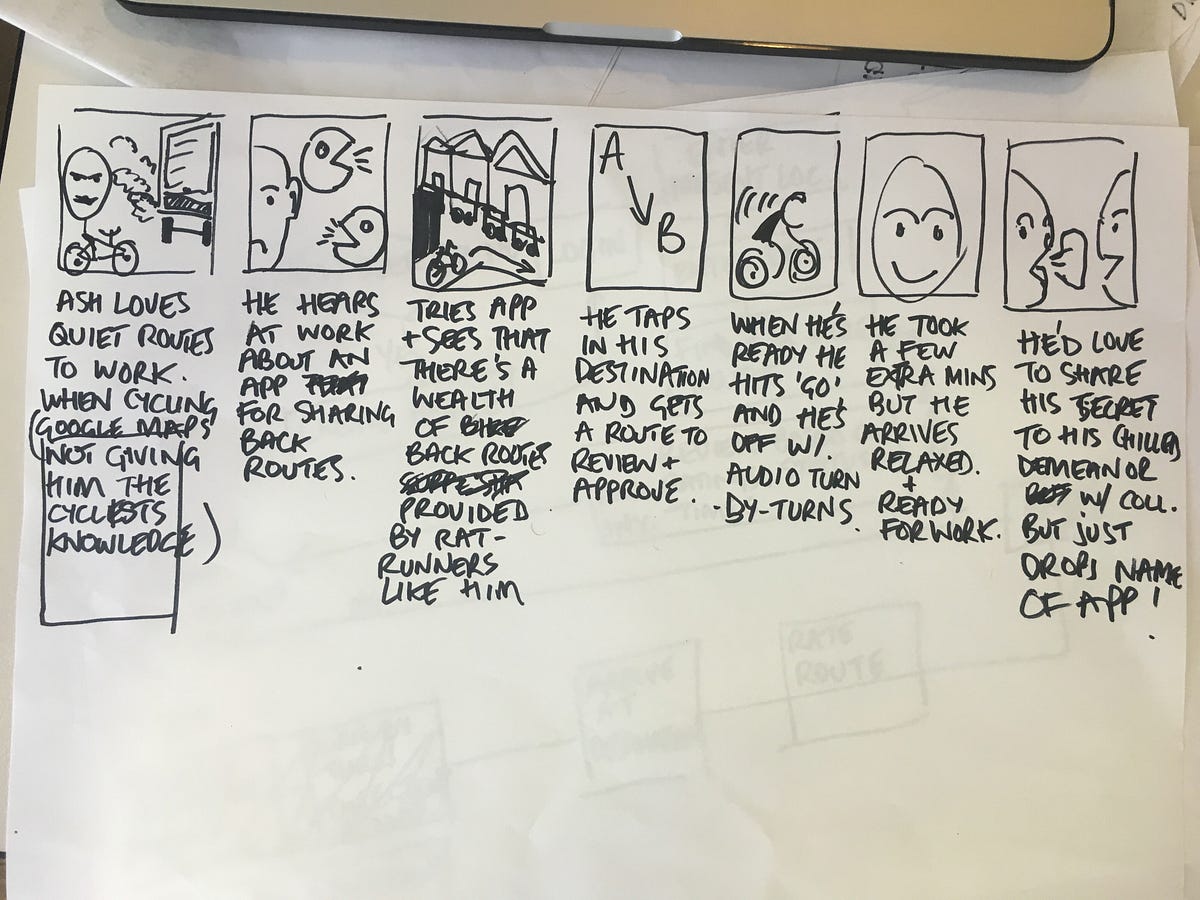 ASH LOVES
QUIET ROUTES
TO WORK.
WHEN CYCLING
(GOOGLE MAPS
NOT GIVING
HIM THE
CYCLISTS
KNOWLEDGE)
HE HEARS
AT WORK
ABOUT AN
APP
FOR SHARING
BACK
ROUTES.
TRIES APP
+ SEES THAT
THERE'S A
WEALTH
OF
BACK ROUTES
PROVIDED
BY RAT-
RUNNERS
LIKE HIM
A
B
HE TAPS
IN HIS
DESTINATION
AND GETS
A ROUTE TO
REVIEW +
APPROVE.
WHEN HE'S
READY HE
HITS 'GO'
AND HE'S
OFF W/.
AUDIO TURN
-BY-TURNS.
HE TOOK
A FEW
EXTRA MINS
BUT HE
ARRIVES
RELAXED.
+
READY
FOR WORK.
HE'D LOVE
TO SHARE
HIS SECRET
TO HIS CHILLED
DEMEANOR
W/ COLL.
BUT JUST
DROPS NAME
OF APP!
RATE
ROUTE